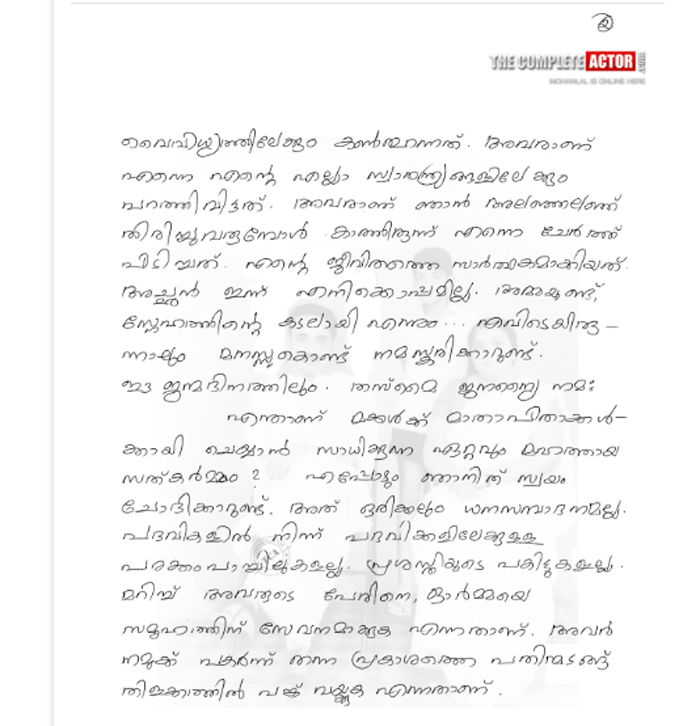 2
THE COMPLETE ACTOR
MOHANLAL IS ONLINE HERE
വൈവിധ്യത്തിലേക്കും കൺതുറന്നത്. അവരാണ്
എന്നെ എന്റെ എല്ലാ സ്വാതന്ത്ര്യങ്ങളിലേക്കും
പറത്തിവിട്ടത്. അവരാണ് ഞാൻ അലഞ്ഞലഞ്ഞ്
തിരിച്ചുവരുമ്പോൾ കാത്തിരുന്ന് എന്നെ ചേർത്ത്
പിടിച്ചത്. എന്റെ ജീവിതത്തെ സാർത്ഥകമാക്കിയത്.
അച്ഛൻ ഇന്ന് എനിക്കൊപ്പമില്ല. അമ്മയുണ്ട്,
സ്നേഹത്തിന്റെ കടലായി എന്നും... എവിടെയിരു-
ന്നാലും മനസ്സുകൊണ്ട് നമസ്കരിക്കാറുണ്ട്.
ഈ ജന്മദിനത്തിലും. തസ്മൈ ജനന്യൈ നമഃ
എന്താണ് മക്കൾക്ക് മാതാപിതാക്കൾ-
ക്കായി ചെയ്യാൻ സാധിക്കുന്ന ഏറ്റവും മഹത്തായ
സത്കർമ്മം? എപ്പോഴും ഞാനിത് സ്വയം
ചോദിക്കാറുണ്ട്. അത് ഒരിക്കലും ധനസമ്പാദനമല്ല.
പദവികളിൽ നിന്ന് പദവിക്കളിലേക്കുള്ള
പരക്കംപാച്ചിലുകളല്ല. പ്രശസ്തിയുടെ പകിട്ടുകളല്ല.
മറിച്ച് അവരുടെ പേരിനെ, ഓർമ്മയെ
സമൂഹത്തിന് സേവനമാക്കുക എന്നതാണ്. അവർ
നമുക്ക് പകർന്ന് തന്ന പ്രകാശത്തെ പതിന്മടങ്ങ്
തിളക്കത്തിൽ പങ്ക് വയ്ക്കുക എന്നതാണ്.